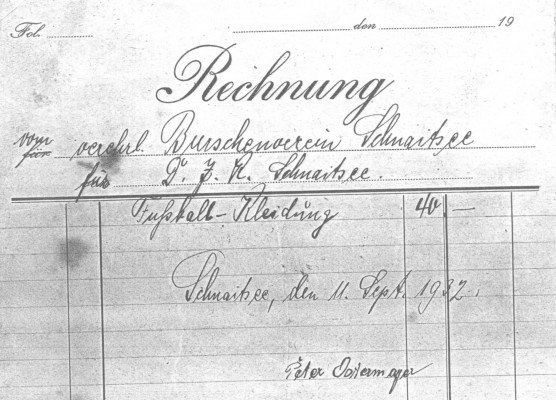 Fol. den 19
Rechnung
vom
für verehrl. Burschenverein Schnaitsee
für D. J. K. Schnaitsee.
Fußball-Kleidung 40 —
Schnaitsee, den 11. Sept. 1932.
Peter Ostermayer